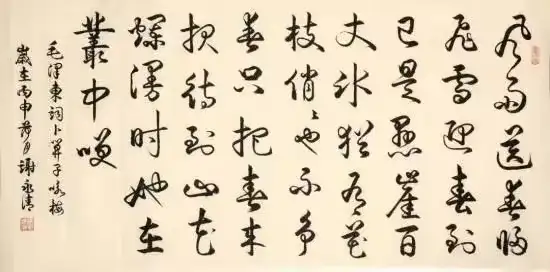 风雨送春归
飞雪迎春到
已是悬崖百
丈冰犹有花
枝俏々也不争
春只把春来
报待到山花
烂漫时她在
叢中咲
毛泽东词卜算子咏梅
歲在丙申荷月谢永清